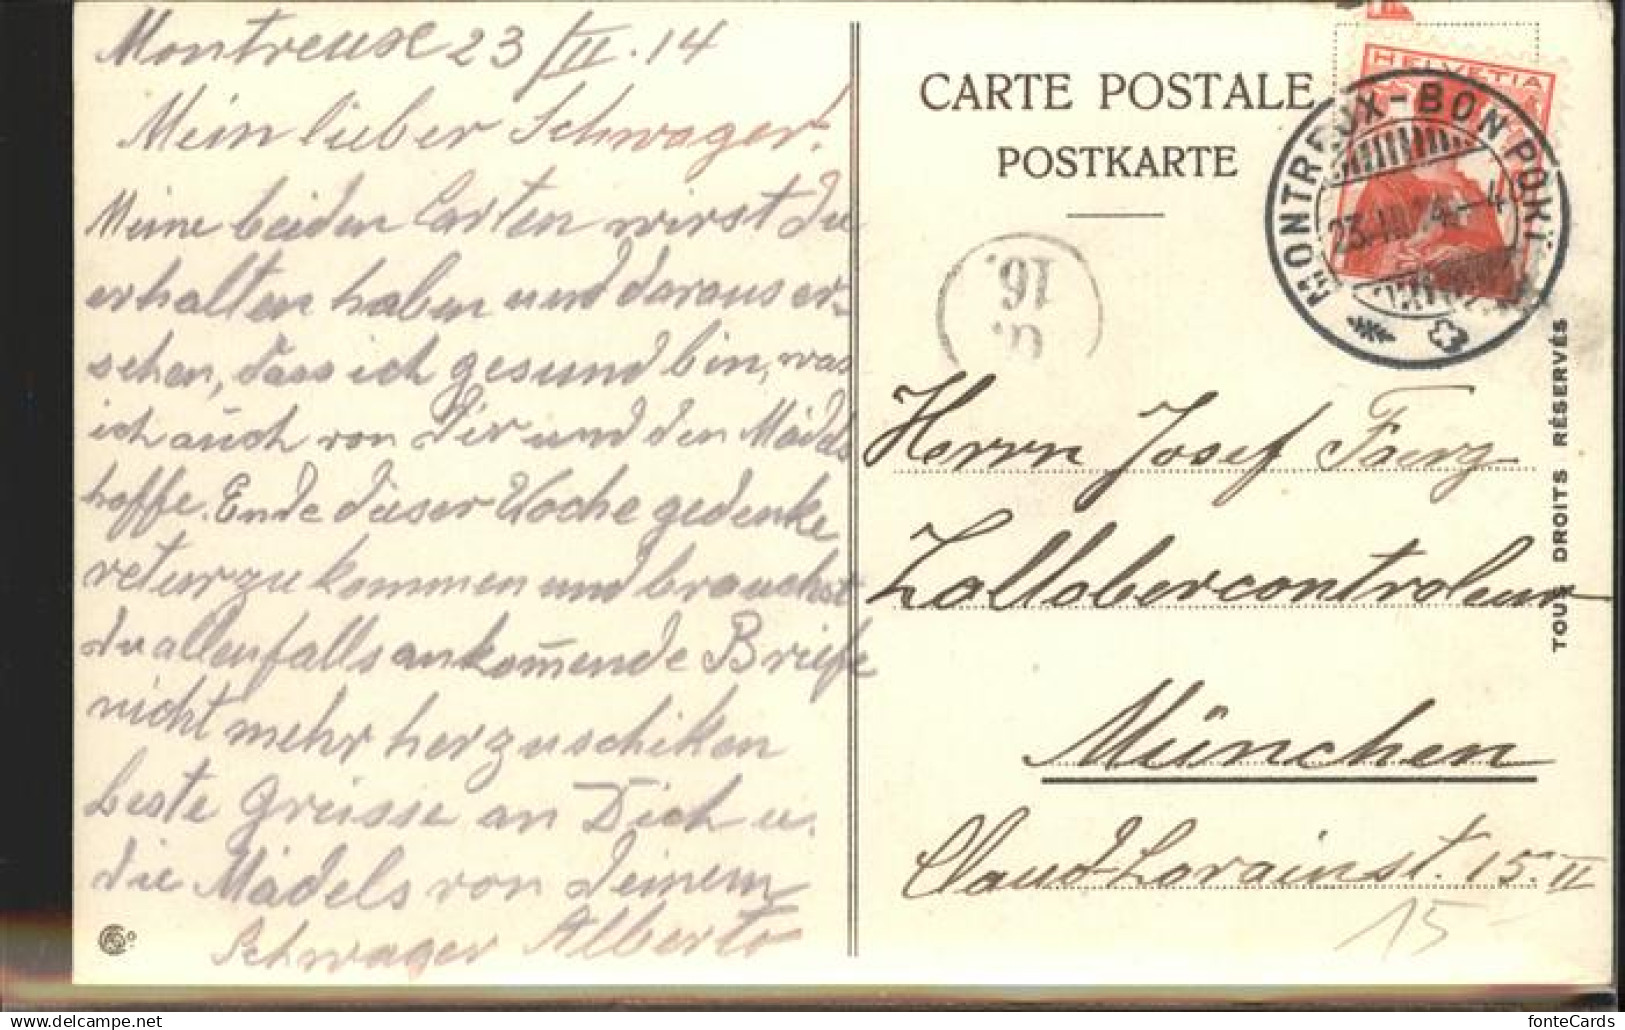 Montreux 23/III.14
Mein lieber Schwager!
Meine beiden Carten wirst du
erhalten haben und daraus er-
sehen, dass ich gesund bin, was
ich auch von Dir und den Mädels
hoffe. Ende dieser Woche gedenke
retur zu kommen und brauchst
du allenfalls ankom̄ende Briefe
nicht mehr herzuschiken
beste Grüsse an Dich u.
die Mädels von deinem
Schwager Alberto
CARTE POSTALE
POSTKARTE
HELVETIA
MONTREUX-BON PORT
23.III.14.-4
16.
Herrn Josef
Zollobercontroleur
München
Claud-Lorainst. 15.II
15-
TOUS DROITS RÉSERVÉS
www.delcampe.net
fonteCards